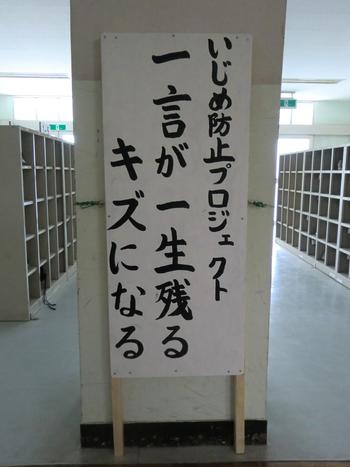 いじめ防止プロジェクト
一言が一生残る
キズになる